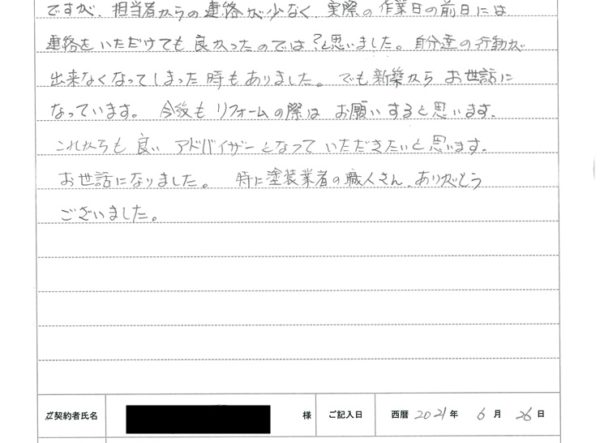 ですが、担当者からの連絡が少なく、実際の作業日の前日には
連絡をいただけても良かったのでは?と思いました。自分達の行動が
出来なくなってしまった時もありました。でも新築からお世話に
なっています。今後もリフォームの際はお願いすると思います。
これからも良いアドバイザーとなっていただきたいと思います。
お世話になりました。特に塗装業者の職人さん、ありがとう
ございました。
ご契約者氏名 様 ご記入日 西暦 2021年 6月 26日